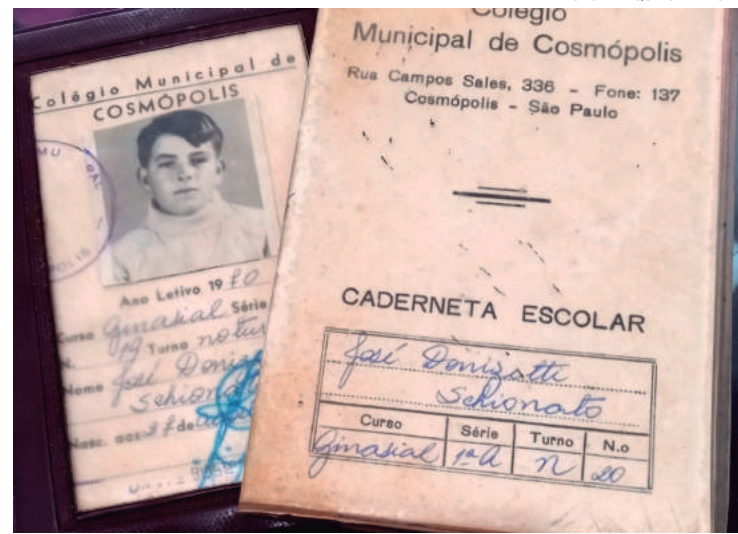 Colégio Municipal de
COSMÓPOLIS
Ano Letivo 1970
Curso Ginasial Série
N. 19 Turno notur
Nome José Doniz
Schiona
Nasc. aos 27 de
Colégio
Municipal de Cosmópolis
Rua Campos Sales, 336 - Fone: 137
Cosmópolis - São Paulo
CADERNETA ESCOLAR
José Donizatti
Schionato
Curso Série Turno N.o
Ginasial 1ª A n 20